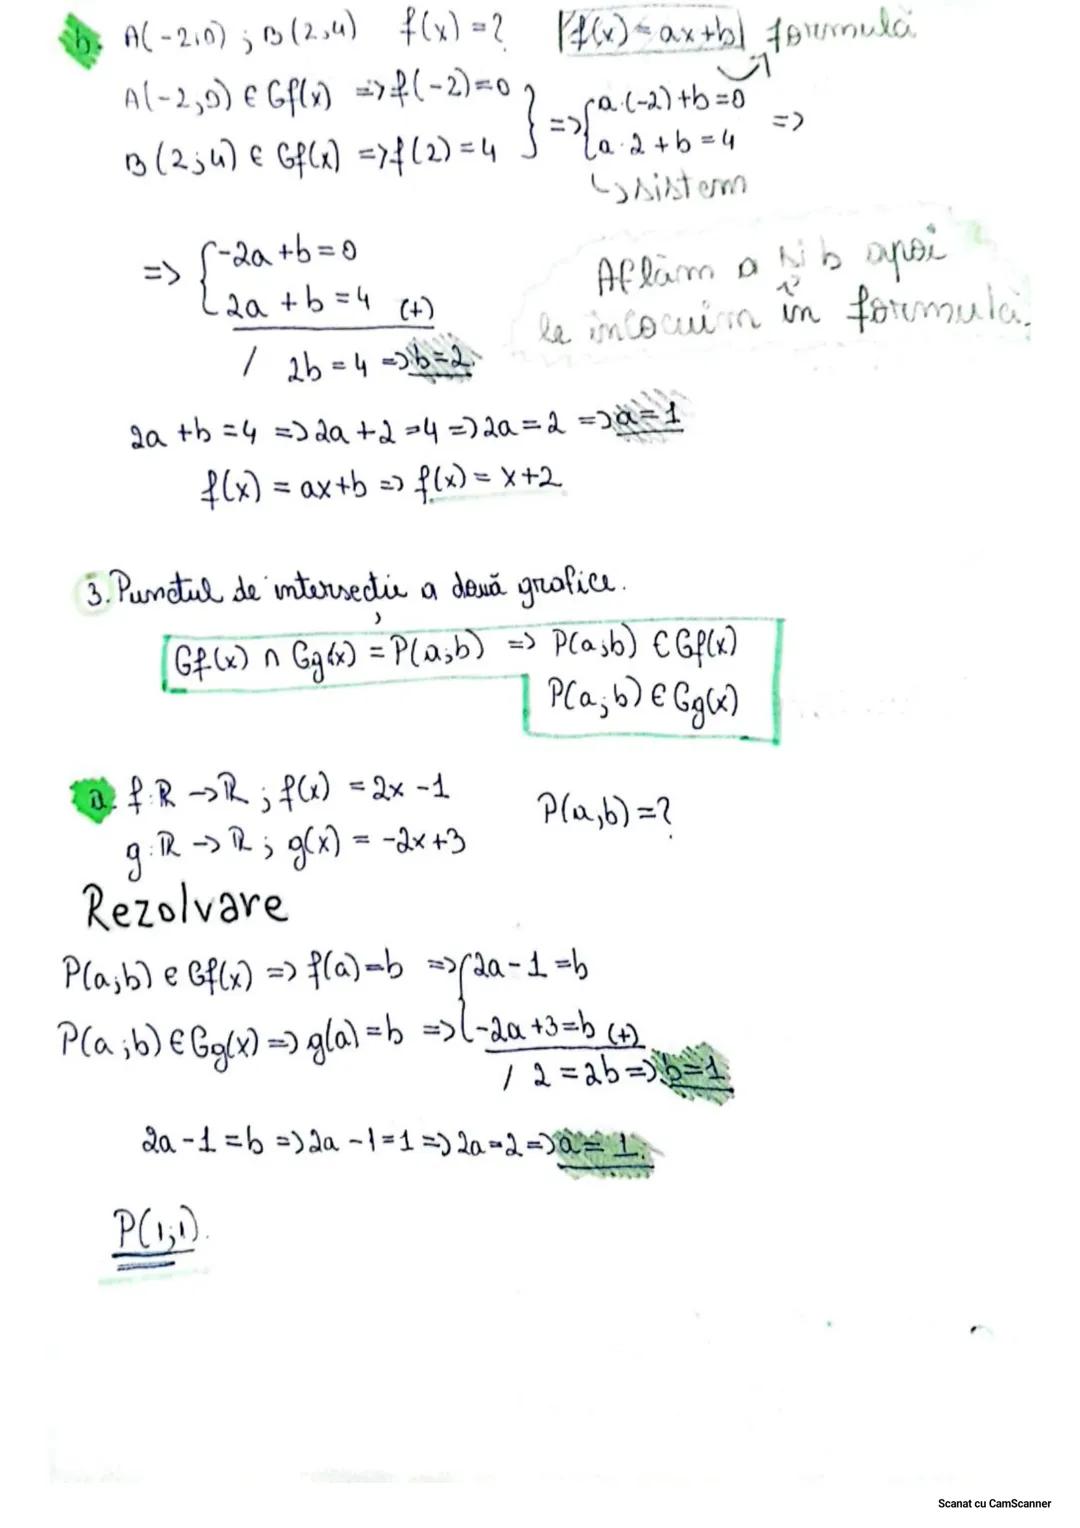 b. A(-2,0) ; B(2,4) f(x)=? |f(x)=ax+b| formulă
A(-2,0) ∈ Gf(x) => f(-2)=0 } => { a·(-2)+b=0
B(2;4) ∈ Gf(x) => f(2)=4 a·2+b=4 =>
↳ sistem
=> { -2a+b=0
2a+b=4 (+)
/ 2b=4 => b=2.
Aflăm a și b apoi
le inlocuim in formulă.
2a+b=4 => 2a+2=4 => 2a=2 => a=1
f(x)=ax+b => f(x)=x+2
3. Punctul de intersecție a două grafice.
Gf(x) ∩ Gg(x) = P(a;b) => P(a;b) ∈ Gf(x)
P(a;b) ∈ Gg(x)
a. f:R→R ; f(x) = 2x-1
g:R→R ; g(x) = -2x+3
P(a,b)=?
Rezolvare
P(a;b) ∈ Gf(x) => f(a)=b => { 2a-1=b
P(a;b) ∈ Gg(x) => g(a)=b => -2a+3=b (+)
/ 2=2b => b=1
2a-1=b => 2a-1=1 => 2a=2 => a=1.
P(1;1).
Scanat cu CamScanner